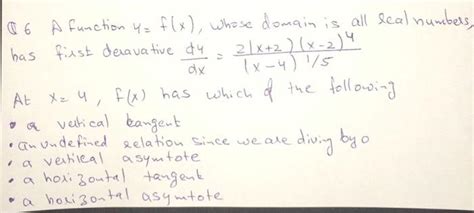 Q6 A function y= f(x), whose domain is all real numbers,
has first deravative dy/dx = 2(x+2)(x-2)^4/(x-4)^1/5
At x= 4, f(x) has which of the following
• a vetical tangent
• an undefined relation since we are diving by 0
• a vertical asymtote
• a horizontal tangent
• a horizontal asymtote